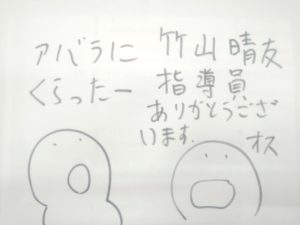 アバラに
くらったー
竹山晴友
指導員
ありがとうござ
います.
オス